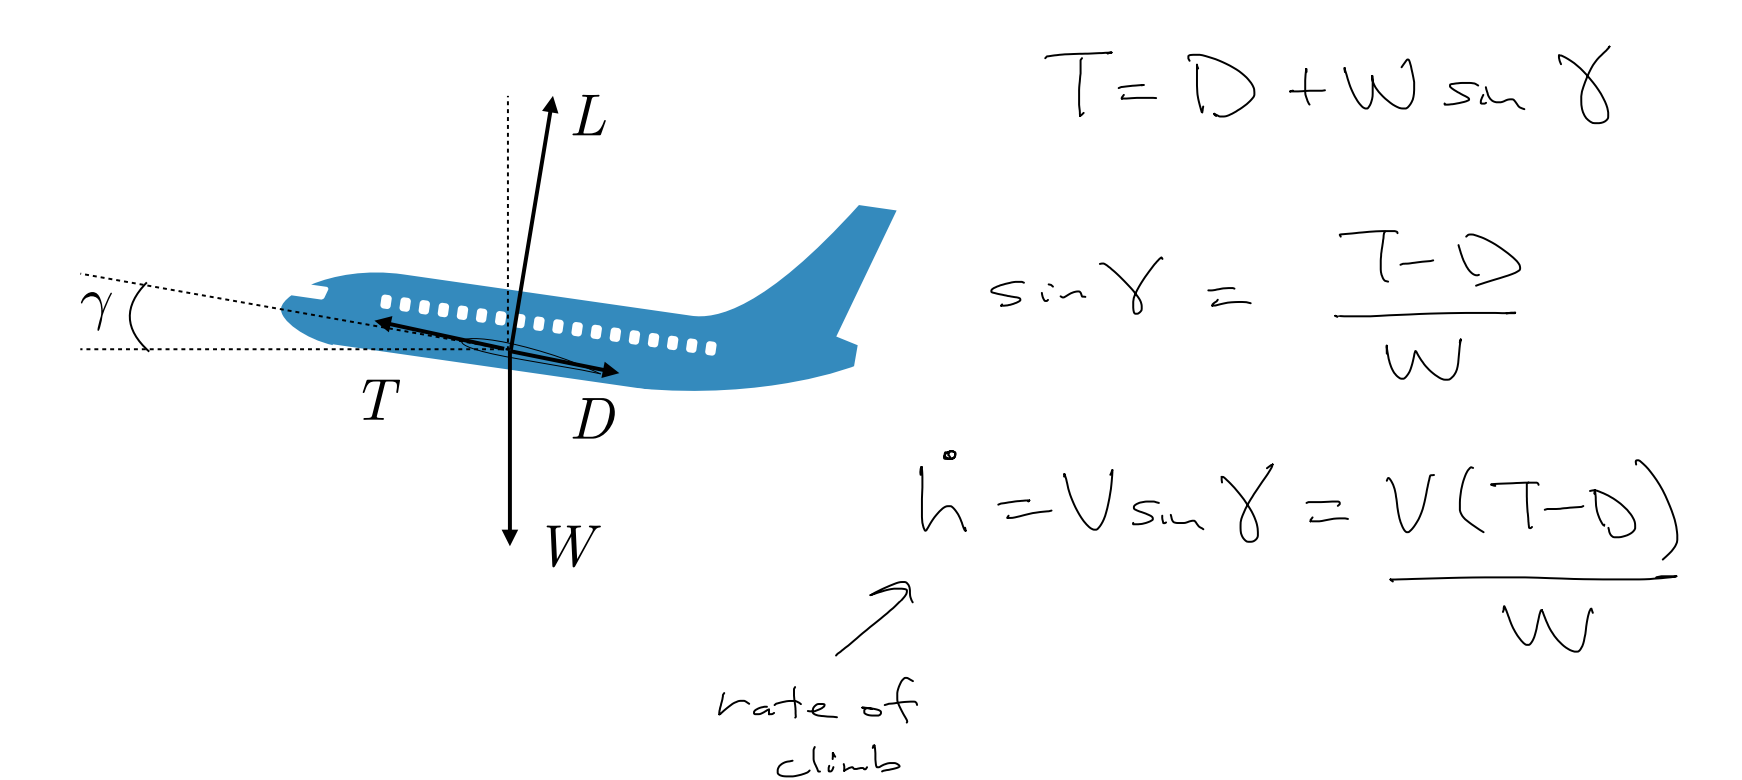 L
γ
T
D
W
T = D + W sin γ
sin γ = (T - D) / W
ḣ = V sin γ = V(T - D) / W
rate of
climb